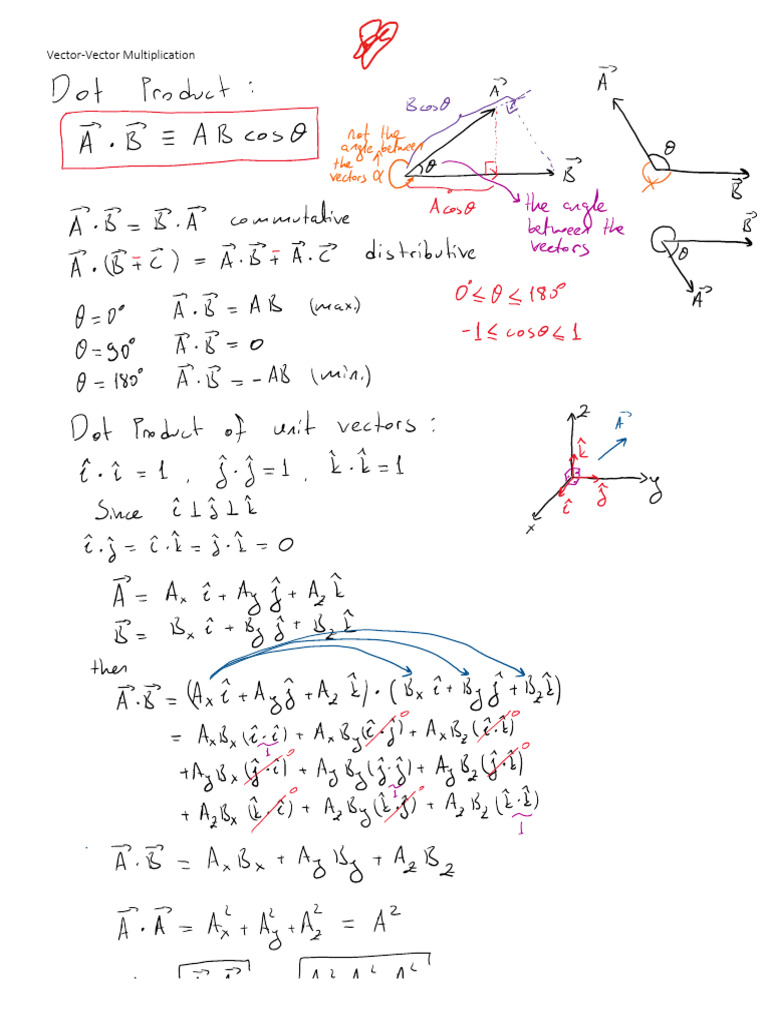 Vector-Vector Multiplication
Dot Product :
A⃗ . B⃗ ≡ A B cos θ
B cosθ
A⃗
not the
angle between
the
vectors α
θ
B⃗
A cosθ
the angle
between the
vectors
A⃗
θ
B⃗
B⃗
θ
A⃗
A⃗ . B⃗ = B⃗ . A⃗ commutative
A⃗ . (B⃗ ∓ C⃗ ) = A⃗ . B⃗ ∓ A⃗ . C⃗ distributive
θ = 0° A⃗ . B⃗ = AB (max.)
θ = 90° A⃗ . B⃗ = 0
θ = 180° A⃗ . B⃗ = -AB (min.)
0° ≤ θ ≤ 180°
-1 ≤ cosθ ≤ 1
Dot Product of unit vectors :
î . î = 1 , ĵ . ĵ = 1 , k̂ . k̂ = 1
Since î ⊥ ĵ ⊥ k̂
î . ĵ = î . k̂ = ĵ . k̂ = 0
z
A⃗
k̂
ĵ
y
î
x
A⃗ = Ax î + Ay ĵ + Az k̂
B⃗ = Bx î + By ĵ + Bz k̂
then
A⃗ . B⃗ = (Ax î + Ay ĵ + Az k̂) . (Bx î + By ĵ + Bz k̂)
= AxBx (î . î) + AxBy (î . ĵ) 0 + AxBz (î . k̂) 0
1
+ AyBx (ĵ . î) 0 + AyBy (ĵ . ĵ) + AyBz (ĵ . k̂) 0
1
+ AzBx (k̂ . î) 0 + AzBy (k̂ . ĵ) 0 + AzBz (k̂ . k̂)
1
A⃗ . B⃗ = AxBx + AyBy + AzBz
A⃗ . A⃗ = Ax² + Ay² + Az² = A²